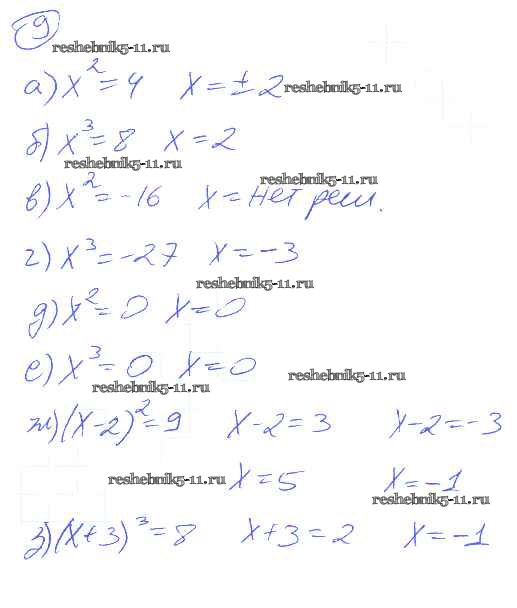 9
reshebnik5-11.ru
а) x² = 4 x = ±2 reshebnik5-11.ru
б) x³ = 8 x = 2
reshebnik5-11.ru
reshebnik5-11.ru
в) x² = -16 x = нет реш.
г) x³ = -27 x = -3
reshebnik5-11.ru
д) x² = 0 x = 0
е) x³ = 0 x = 0
reshebnik5-11.ru
reshebnik5-11.ru
ж) (x-2)² = 9 x-2 = 3 x-2 = -3
reshebnik5-11.ru x = 5 x = -1
reshebnik5-11.ru
з) (x+3)³ = 8 x+3 = 2 x = -1